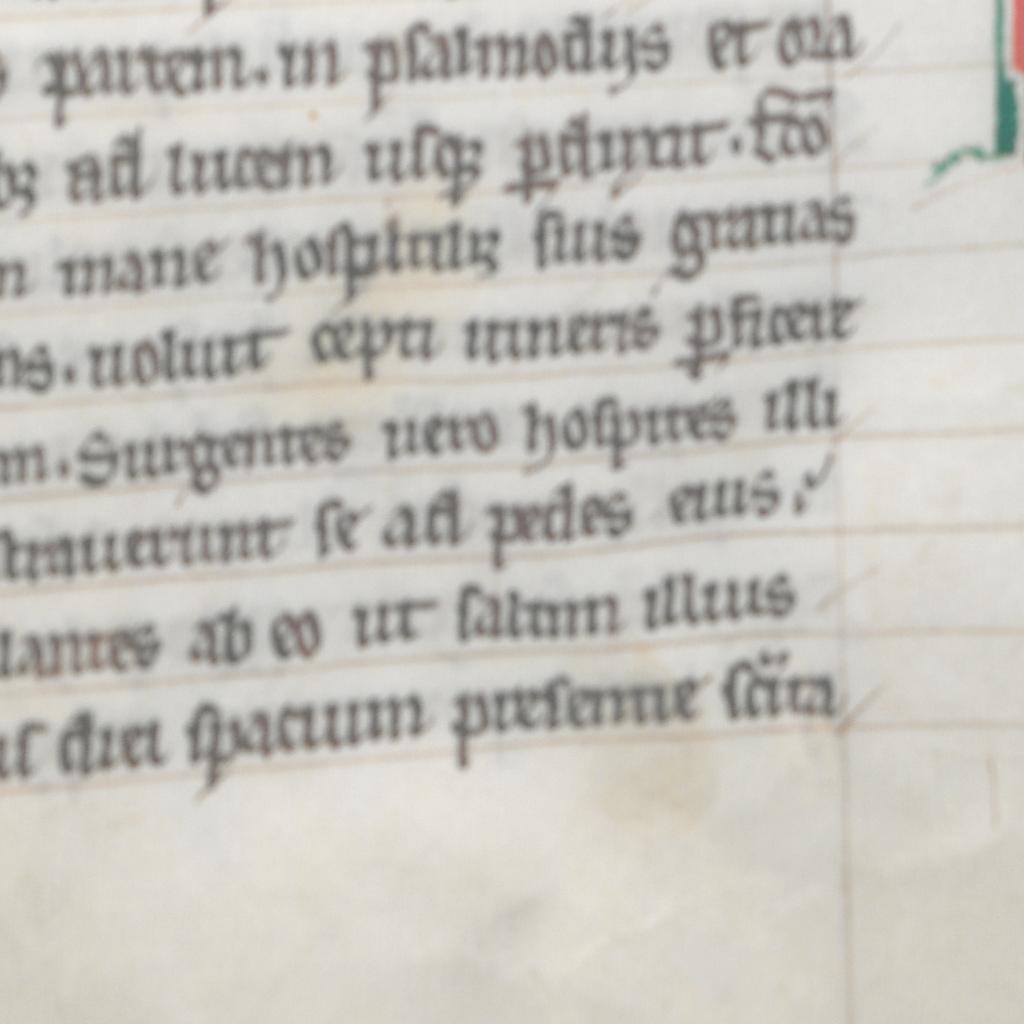 partem . in psalmodijs et ora
bꝫ ad lucem usqꝫ ꝑdurat . fc̄o
n mane hospitalibꝫ suis gratias
ns . uoluit cepti itineris ꝑficere
m . Surgentes uero hospites illi
strauerunt se ad pedes eius .
lantes ab eo ut saltim illius
us diei spacium presentie sc̄ita